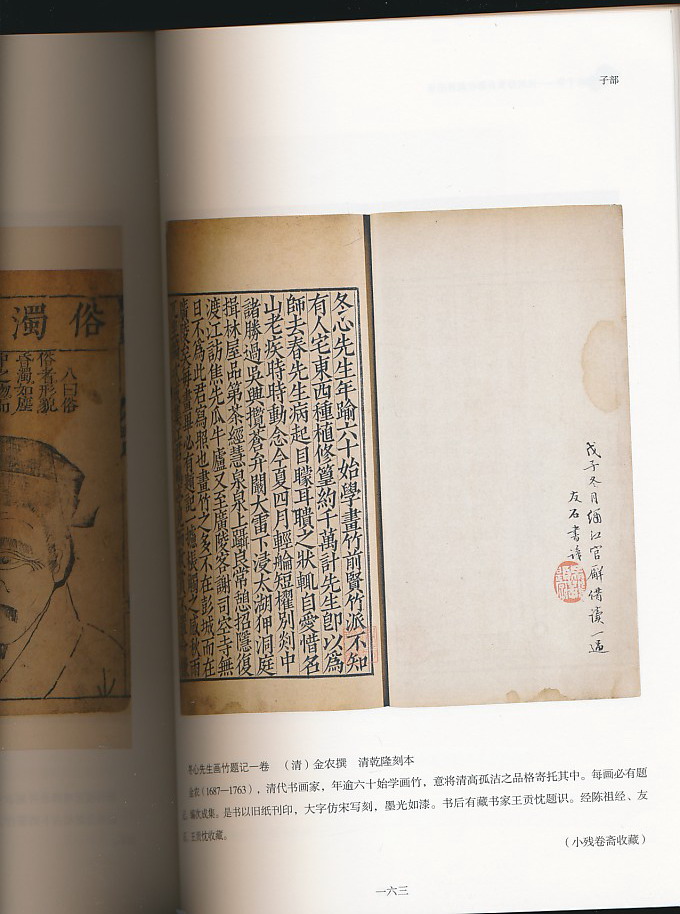 子部
俗濁
八曰俗
俗者形貌
昏濁如塵
中之物而
冬心先生年踰六十始學畫竹前賢竹派不知
有人宅東西種植修篁約千萬計先生卽以為
師去春先生病起目矇耳聵之狀輒自愛惜名
山老疾時時動念今夏四月輕舲短櫂別剡中
諸勝過吳興攬蒼弁闞大雷下浸太湖狎洞庭
揖林屋品第茶經慧泉泉上躡良常憩招隱復
渡江訪焦先瓜牛廬又至廣陵客謝司空寺無
日不為此君寫照也畫竹之多不在彭城而在
廣陵矣每畫畢必有題記一編悵觸之感秋雨
戊子冬月江官廨借讀一過
友石書
冬心先生画竹题记一卷 （清）金农撰 清乾隆刻本
金农（1687—1763），清代书画家，年逾六十始学画竹，意将清高孤洁之品格寄托其中。每画必有题
记，编次成集。是书以旧纸刊印，大字仿宋写刻，墨光如漆。书后有藏书家王贡忱题识。经陈祖经、友
石、王贡忱收藏。
（小残卷斋收藏）
一六三